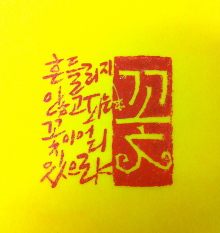 흔들리지
않고 피는
꽃이 어디
있으랴
꽃